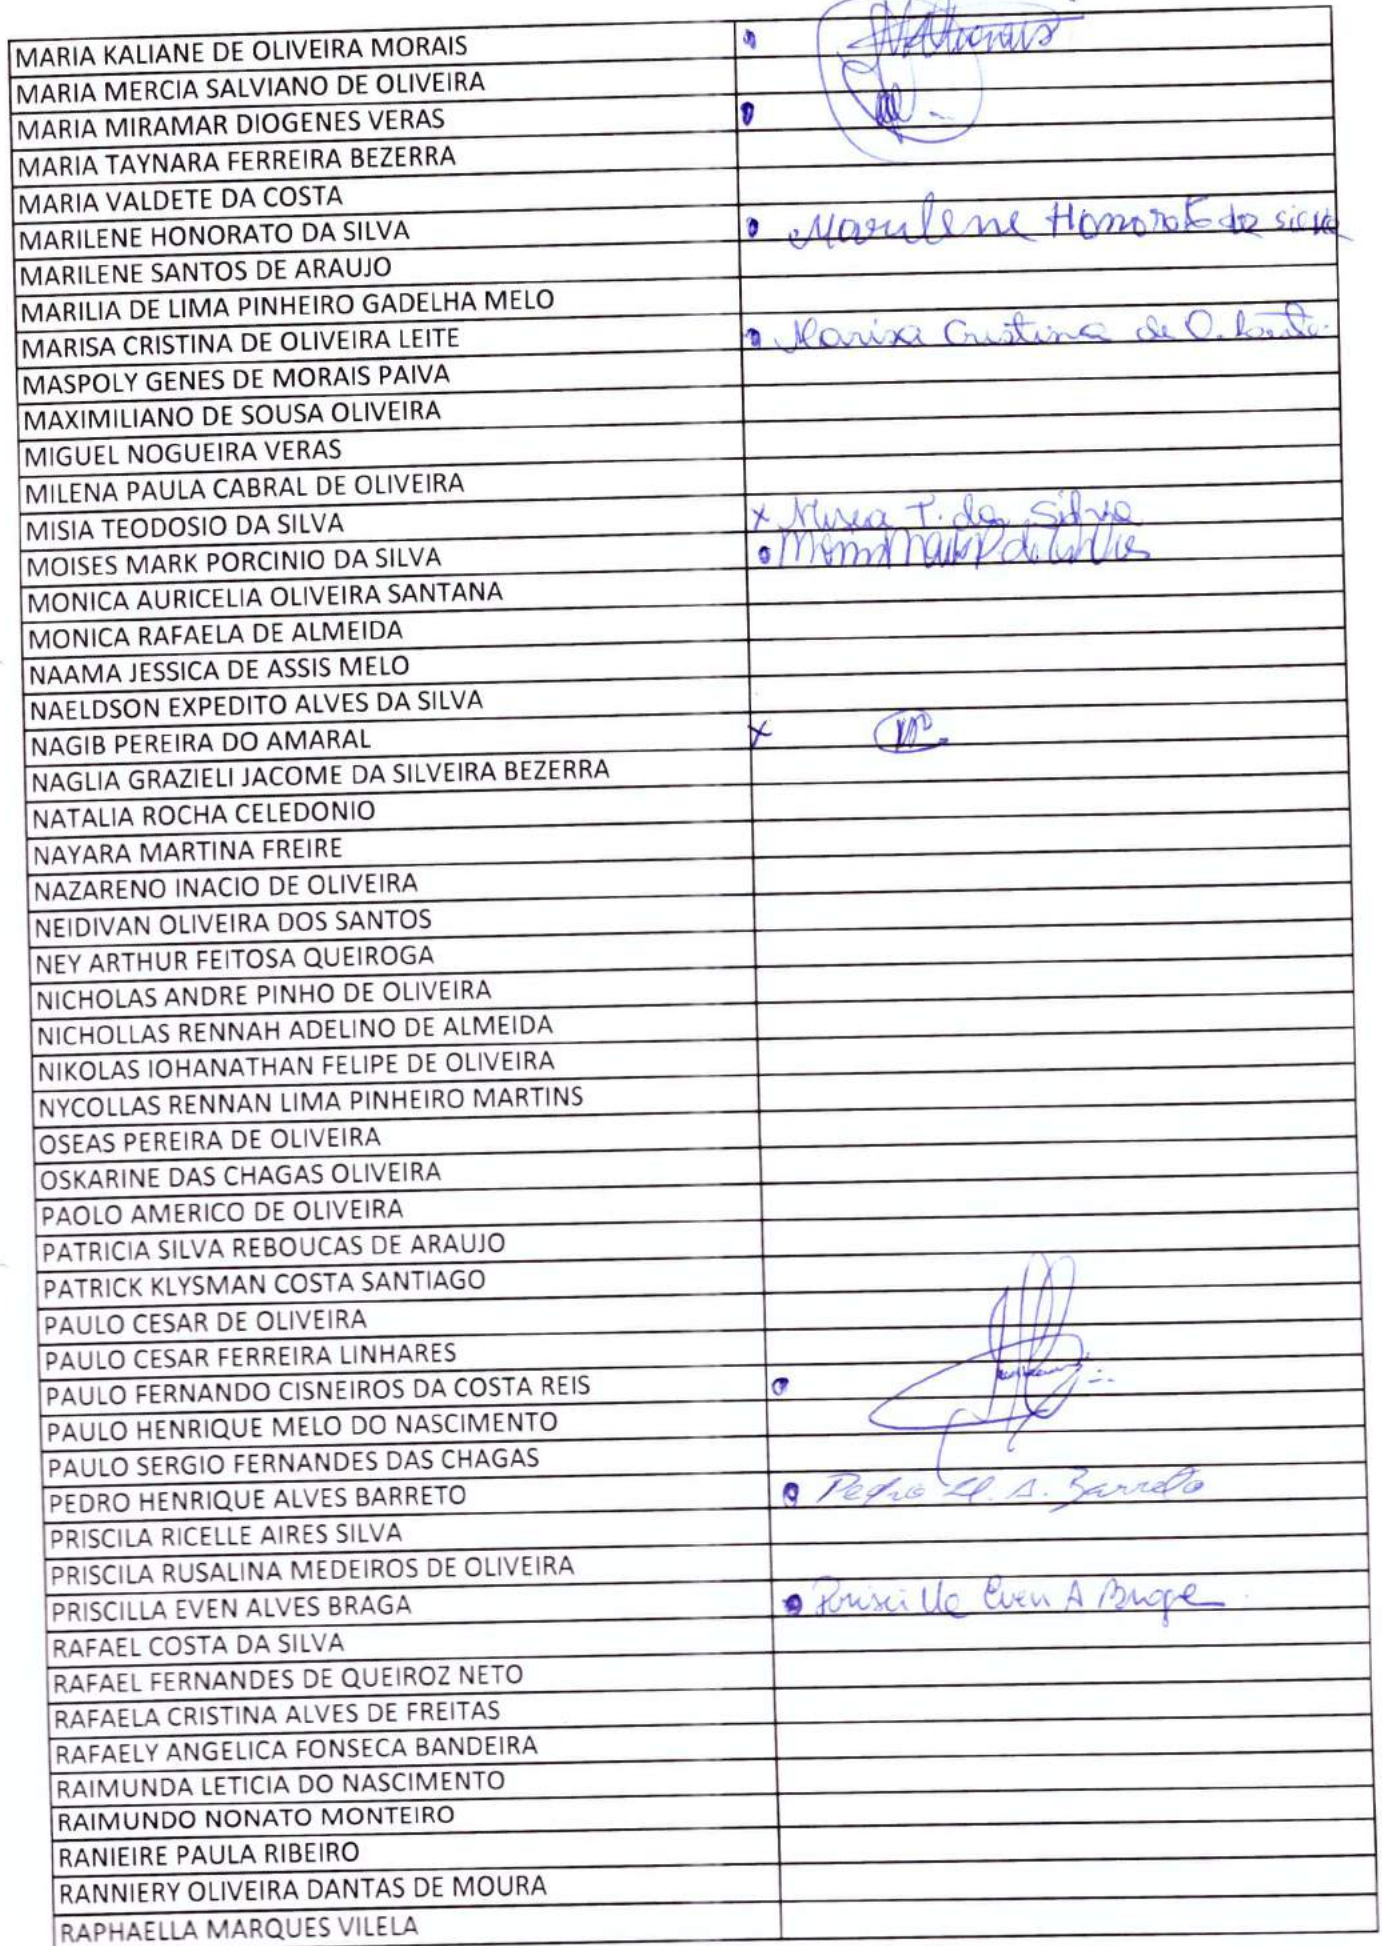 MARIA KALIANE DE OLIVEIRA MORAIS
MARIA MERCIA SALVIANO DE OLIVEIRA
MARIA MIRAMAR DIOGENES VERAS
MARIA TAYNARA FERREIRA BEZERRA
MARIA VALDETE DA COSTA
MARILENE HONORATO DA SILVA Marilene Honorato da silva
MARILENE SANTOS DE ARAUJO
MARILIA DE LIMA PINHEIRO GADELHA MELO
MARISA CRISTINA DE OLIVEIRA LEITE Marisa Cristina de O. Leite.
MASPOLY GENES DE MORAIS PAIVA
MAXIMILIANO DE SOUSA OLIVEIRA
MIGUEL NOGUEIRA VERAS
MILENA PAULA CABRAL DE OLIVEIRA
MISIA TEODOSIO DA SILVA x Misia T. da Silva
MOISES MARK PORCINIO DA SILVA
MONICA AURICELIA OLIVEIRA SANTANA
MONICA RAFAELA DE ALMEIDA
NAAMA JESSICA DE ASSIS MELO
NAELDSON EXPEDITO ALVES DA SILVA
NAGIB PEREIRA DO AMARAL x
NAGLIA GRAZIELI JACOME DA SILVEIRA BEZERRA
NATALIA ROCHA CELEDONIO
NAYARA MARTINA FREIRE
NAZARENO INACIO DE OLIVEIRA
NEIDIVAN OLIVEIRA DOS SANTOS
NEY ARTHUR FEITOSA QUEIROGA
NICHOLAS ANDRE PINHO DE OLIVEIRA
NICHOLLAS RENNAH ADELINO DE ALMEIDA
NIKOLAS IOHANATHAN FELIPE DE OLIVEIRA
NYCOLLAS RENNAN LIMA PINHEIRO MARTINS
OSEAS PEREIRA DE OLIVEIRA
OSKARINE DAS CHAGAS OLIVEIRA
PAOLO AMERICO DE OLIVEIRA
PATRICIA SILVA REBOUCAS DE ARAUJO
PATRICK KLYSMAN COSTA SANTIAGO
PAULO CESAR DE OLIVEIRA
PAULO CESAR FERREIRA LINHARES
PAULO FERNANDO CISNEIROS DA COSTA REIS
PAULO HENRIQUE MELO DO NASCIMENTO
PAULO SERGIO FERNANDES DAS CHAGAS
PEDRO HENRIQUE ALVES BARRETO Pedro H. A. Barreto
PRISCILA RICELLE AIRES SILVA
PRISCILA RUSALINA MEDEIROS DE OLIVEIRA
PRISCILLA EVEN ALVES BRAGA Priscilla Even A Braga
RAFAEL COSTA DA SILVA
RAFAEL FERNANDES DE QUEIROZ NETO
RAFAELA CRISTINA ALVES DE FREITAS
RAFAELY ANGELICA FONSECA BANDEIRA
RAIMUNDA LETICIA DO NASCIMENTO
RAIMUNDO NONATO MONTEIRO
RANIEIRE PAULA RIBEIRO
RANNIERY OLIVEIRA DANTAS DE MOURA
RAPHAELLA MARQUES VILELA